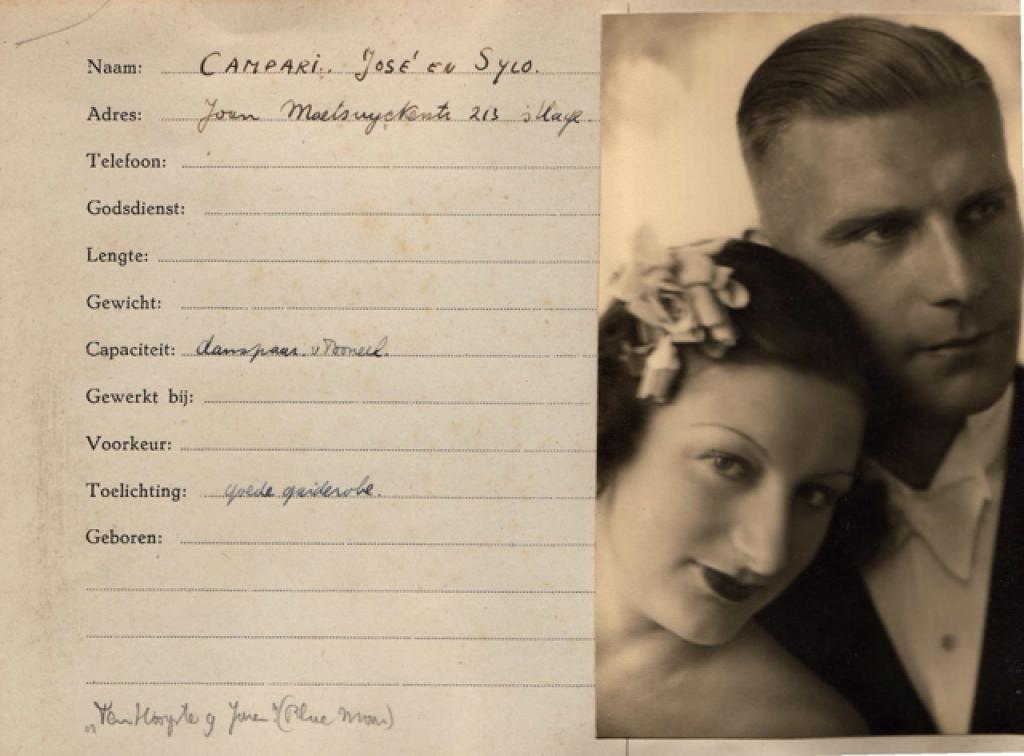 Naam: CAMPARI. JOSÉ en SYLO.
Adres: Joan Maetsuyckerstr 213 s'Hage.
Telefoon:
Godsdienst:
Lengte:
Gewicht:
Capaciteit: danspaar. v Toneel.
Gewerkt bij:
Voorkeur:
Toelichting: goede garderobe.
Geboren:
(Blue Moon)